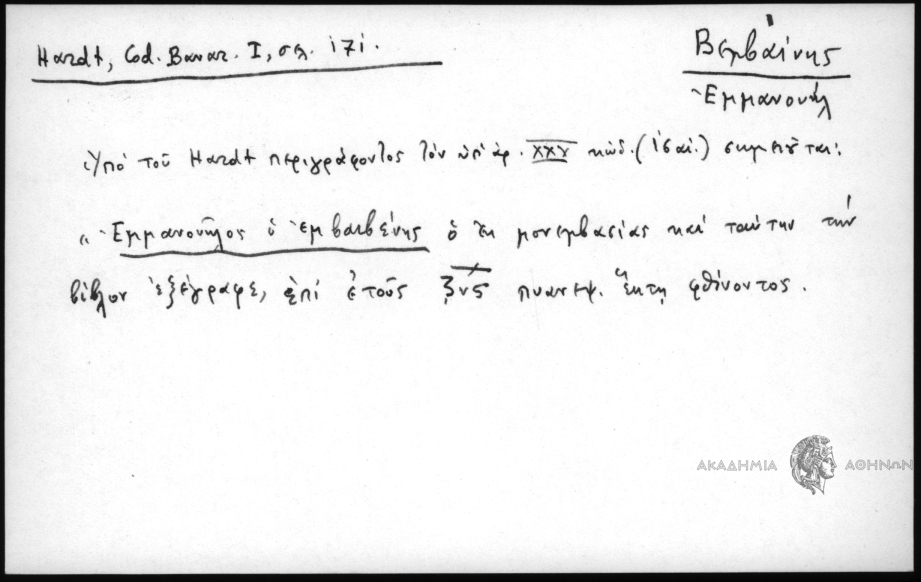 Hardt, Cod. Bavar. I, σελ. 171.
Βεμβαίνης
Ἐμμανουήλ
Ὑπό τοῦ Hardt περιγράφοντος τόν ὑπ' ἀρ. XXV κώδ. (Ἰσαΐ.) σημειοῦται:
"Ἐμμανουῆλος ὁ Ἐμβαιβένης ὁ ἐκ μονεμβασίας καί ταύτην τήν
βίβλον ἐξέγραφε, ἐπί ἔτους ζνς πυανεψ. ἕκτῃ φθίνοντος.
ΑΚΑΔΗΜΙΑ ΑΘΗΝΩΝ